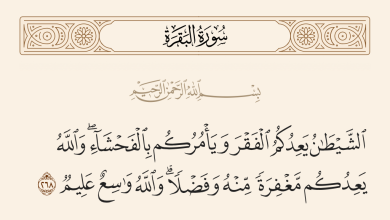 سُورَةُ البَقَرَةِ
بِسْمِ اللَّهِ الرَّحْمَٰنِ الرَّحِيمِ
ٱلشَّيْطَٰنُ يَعِدُكُمُ ٱلْفَقْرَ وَيَأْمُرُكُم بِٱلْفَحْشَآءِۖ وَٱللَّهُ
يَعِدُكُم مَّغْفِرَةً مِّنْهُ وَفَضْلًاۗ وَٱللَّهُ وَٰسِعٌ عَلِيمٌ ٢٦٨